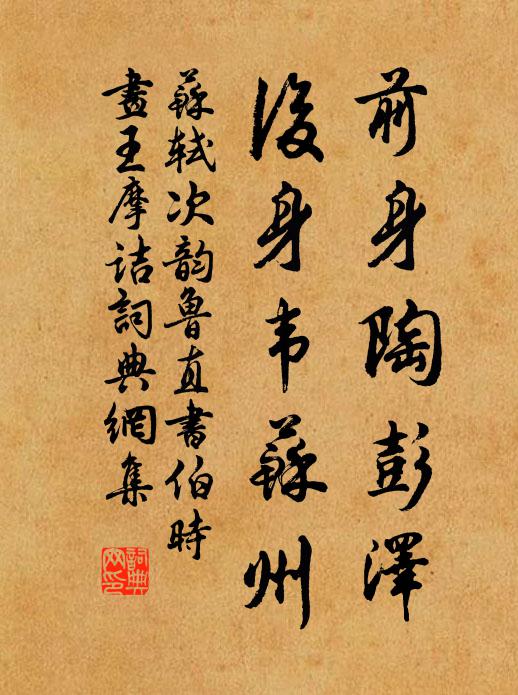 前身陶彭澤
後身韦蘇州
蘇轼次韵魯直書伯時
畫王摩詰詞典網集
詞典网印